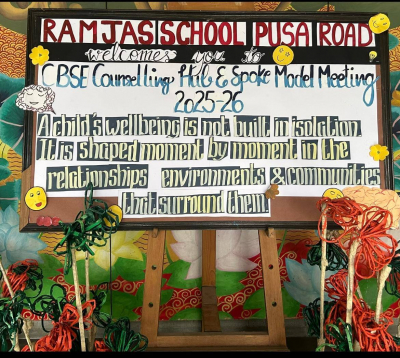 RAMJAS SCHOOL PUSA ROAD
welcomes you to
CBSE Counselling Hub & Spoke Model Meeting
2025-26
A child's wellbeing is not built in isolation.
It is shaped moment by moment in the
relationships environments & communities
that surround them